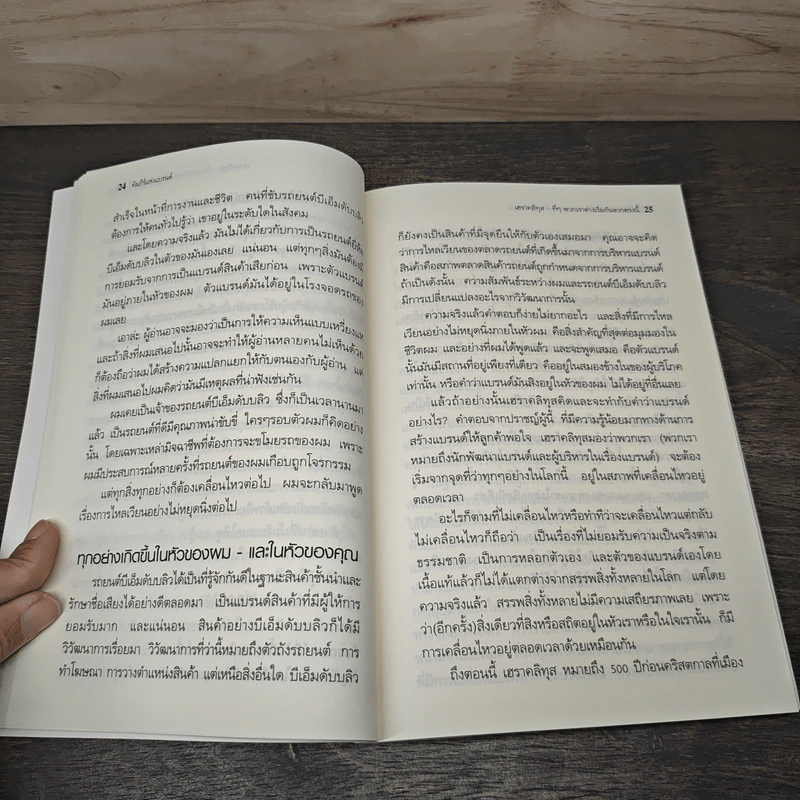 24 คัมภีร์แห่งแบรนด์
สำเร็จในหน้าที่การงานและชีวิต คนที่ขับรถยนต์บีเอ็มดับบลิว
ต้องการให้คนทั่วไปรู้ว่า เขาอยู่ในระดับใดในสังคม
และโดยความจริงแล้ว มันไม่ได้เกี่ยวกับการเป็นรถยนต์ยี่ห้อ
บีเอ็มดับบลิวในตัวของมันเองเลย แน่นอน แต่ทุกๆสิ่งมันต้องมี
การยอมรับจากการเป็นแบรนด์สินค้าเสียก่อน เพราะตัวแบรนด์
มันอยู่ภายในหัวของผม ตัวแบรนด์มันได้อยู่ในโรงจอดรถของ
ผมเลย
เอาล่ะ ผู้อ่านอาจจะมองว่าเป็นการให้ความเห็นแบบเหวี่ยงแห
และถ้าสิ่งที่ผมเสนอไปนั้นอาจจะทำให้ผู้อ่านหลายคนไม่เห็นด้วย
ก็ต้องถือว่าผมได้สร้างความแปลกแยกให้กับตนเองกับผู้อ่าน แต่
สิ่งที่ผมเสนอไปผมคิดว่ามันมีเหตุผลที่น่าฟังเช่นกัน
ผมเคยเป็นเจ้าของรถยนต์บีเอ็มดับบลิว ซึ่งก็เป็นเวลานานมา
แล้ว เป็นรถยนต์ที่ดีมีคุณภาพน่าขับขี่ ใครๆรอบตัวผมก็คิดอย่าง
นั้น โดยเฉพาะเหล่ามิจฉาชีพที่ต้องการจะขโมยรถของผม เพราะ
ผมมีประสบการณ์หลายครั้งที่รถยนต์ของผมเกือบถูกโจรกรรม
แต่ทุกสิ่งทุกอย่างก็ต้องเคลื่อนไหวต่อไป ผมจะกลับมาพูด
เรื่องการไหลเวียนอย่างไม่หยุดนิ่งต่อไป
ทุกอย่างเกิดขึ้นในหัวของผม - และในหัวของคุณ
รถยนต์บีเอ็มดับบลิวได้เป็นที่รู้จักกันดีในฐานะสินค้าชั้นนำและ
รักษาชื่อเสียงได้อย่างดีตลอดมา เป็นแบรนด์สินค้าที่มีผู้ให้การ
ยอมรับมาก และแน่นอน สินค้าอย่างบีเอ็มดับบลิวก็ได้มี
วิวัฒนาการเรื่อยมา วิวัฒนาการที่ว่านี้หมายถึงตัวถังรถยนต์ การ
ทำโฆษณา การวางตำแหน่งสินค้า แต่เหนือสิ่งอื่นใด บีเอ็มดับบลิว
เฮราคลิทุส - ที่ๆ พวกเราต่างเริ่มกันจากตรงนี้ 25
ก็ยังคงเป็นสินค้าที่มีจุดยืนให้กับตัวเองเสมอมา คุณอาจจะคิด
ว่าการไหลเวียนของตลาดรถยนต์ที่เกิดขึ้นมาจากการบริหารแบรนด์
สินค้าคือสภาพตลาดสินค้ารถยนต์ถูกกำหนดจากการบริหารแบรนด์
ถ้าเป็นดังนั้น ความสัมพันธ์ระหว่างผมและรถยนต์บีเอ็มดับบลิว
มีการเปลี่ยนแปลงอะไรจากวิวัฒนาการนั้น
ความจริงแล้วคำตอบก็ง่ายไม่ยากอะไร และสิ่งที่มีการไหล
เวียนอย่างไม่หยุดนิ่งภายในหัวผม คือสิ่งสำคัญที่สุดต่อมุมมองใน
ชีวิตผม และอย่างที่ผมได้พูดแล้ว และจะพูดเสมอ คือตัวแบรนด์
นั้นมันมีสถานที่อยู่เพียงที่เดียว คืออยู่ในสมองข้างในของผู้บริโภค
เท่านั้น หรือคำว่าแบรนด์มันสิงอยู่ในหัวของผม ไม่ได้อยู่ที่อื่นเลย
แล้วถ้าอย่างนั้นเฮราคลิทุสคิดและจะทำกับคำว่าแบรนด์
อย่างไร? คำตอบจากปราชญ์ผู้นี้ ที่มีความรู้น้อยมากทางด้านการ
สร้างแบรนด์ให้ลูกค้าพอใจ เฮราคลิทุสมองว่าพวกเรา (พวกเรา
หมายถึงนักพัฒนาแบรนด์และผู้บริหารในเรื่องแบรนด์) จะต้อง
เริ่มจากจุดที่ว่าทุกๆอย่างในโลกนี้ อยู่ในสภาพที่เคลื่อนไหวอยู่
ตลอดเวลา
อะไรก็ตามที่ไม่เคลื่อนไหวหรือทำทีว่าจะเคลื่อนไหวแต่กลับ
ไม่เคลื่อนไหวก็ถือว่า เป็นเรื่องที่ไม่ยอมรับความเป็นจริงตาม
ธรรมชาติ เป็นการหลอกตัวเอง และตัวของแบรนด์เองโดย
เนื้อแท้แล้วก็ไม่ได้แตกต่างจากสรรพสิ่งทั้งหลายในโลก แต่โดย
ความจริงแล้ว สรรพสิ่งทั้งหลายไม่มีความเสถียรภาพเลย เพราะ
ว่า(อีกครั้ง)สิ่งเดียวที่สิงหรือสถิตอยู่ในหัวเราหรือในใจเรานั้น ก็มี
การเคลื่อนไหวอยู่ตลอดเวลาด้วยเหมือนกัน
ถึงตอนนี้ เฮราคลิทุส หมายถึง 500 ปีก่อนคริสตกาลที่เมือง